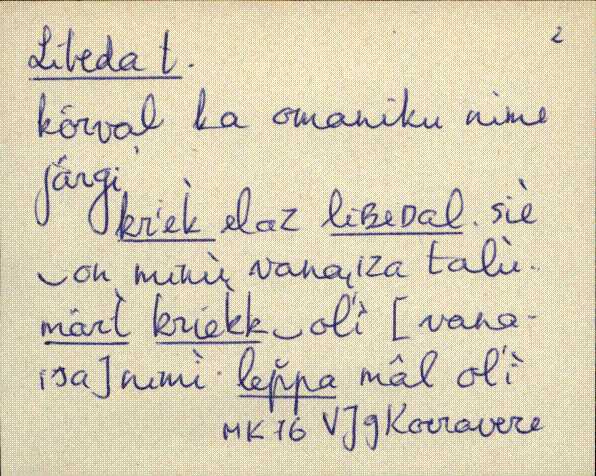 2
Libeda t.
kõrval ka omaniku nime
järgi,
kri̬ek elaz liBeDal. sie
‿on minù vanaiza talù.
mäŕt kriekk‿ol'i [vana-
isa] nimì. leppa mâl ol'ì
MK 76 VJg Koeravere